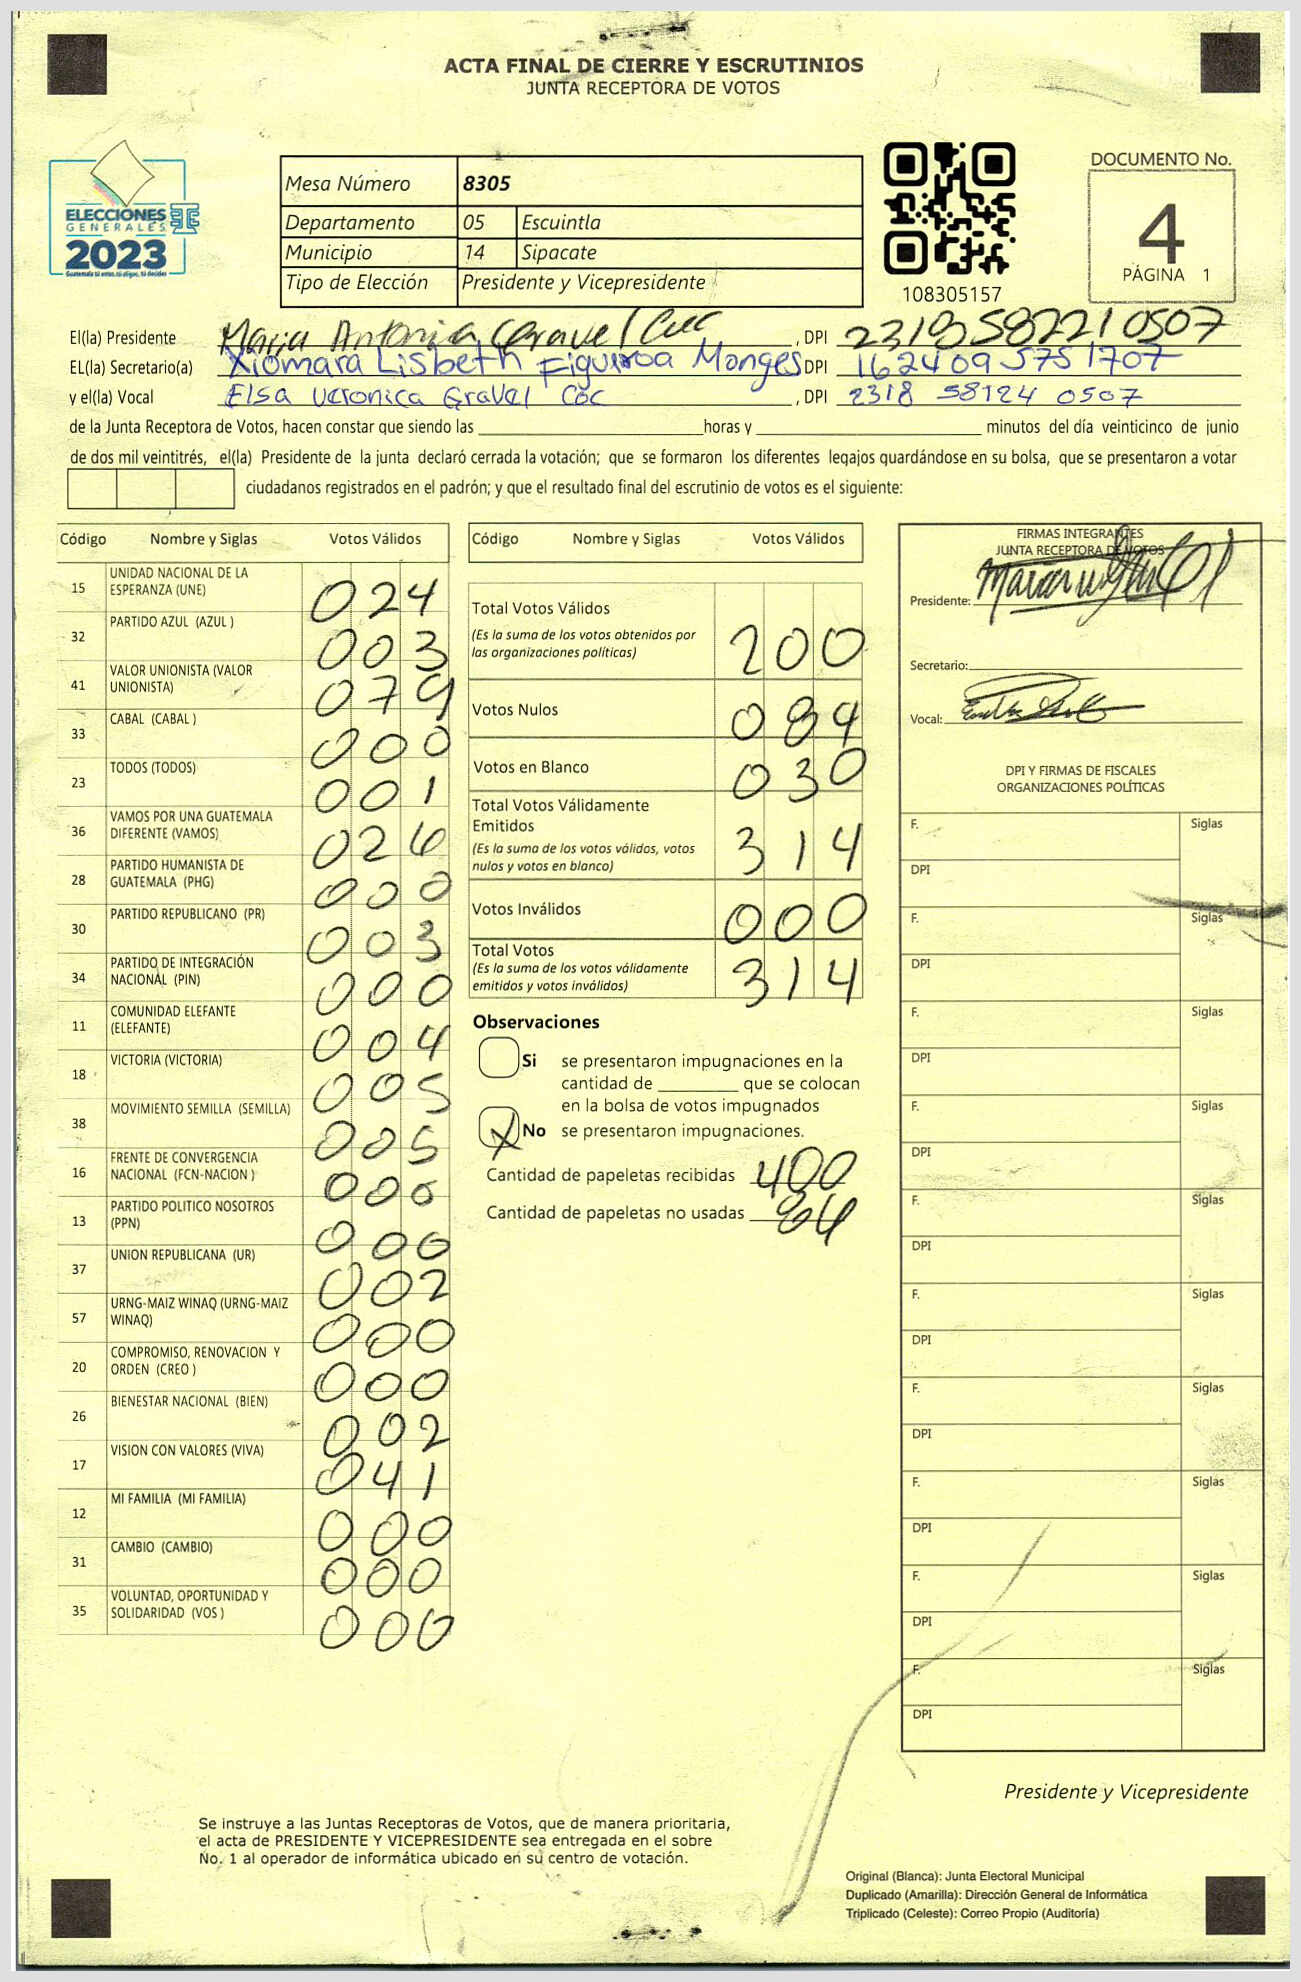 ACTA FINAL DE CIERRE Y ESCRUTINIOS
JUNTA RECEPTORA DE VOTOS
ELECCIONES
GENERALES
2023
Guatemala tú eres, tú eliges, tú decides
Mesa Número 8305
Departamento 05 Escuintla
Municipio 14 Sipacate
Tipo de Elección Presidente y Vicepresidente
108305157
DOCUMENTO No.
4
PÁGINA 1
El(la) Presidente Maria Antonia Gravel Coc, DPI 2319582210507
EL(la) Secretario(a) Xiomara Lisbeth Figueroa Monges DPI 1624095751707
y el(la) Vocal Elsa Veronica Gravel Coc, DPI 2318 58124 0507
de la Junta Receptora de Votos, hacen constar que siendo las horas y minutos del día veinticinco de junio
de dos mil veintitrés, el(la) Presidente de la junta declaró cerrada la votación; que se formaron los diferentes legajos quardándose en su bolsa, que se presentaron a votar
ciudadanos registrados en el padrón; y que el resultado final del escrutinio de votos es el siguiente:
Código Nombre y Siglas Votos Válidos
15 UNIDAD NACIONAL DE LA
ESPERANZA (UNE) 024
32 PARTIDO AZUL (AZUL ) 003
41 VALOR UNIONISTA (VALOR
UNIONISTA) 079
33 CABAL (CABAL ) 000
23 TODOS (TODOS) 001
36 VAMOS POR UNA GUATEMALA
DIFERENTE (VAMOS) 026
28 PARTIDO HUMANISTA DE
GUATEMALA (PHG) 000
30 PARTIDO REPUBLICANO (PR) 003
34 PARTIDO DE INTEGRACIÓN
NACIONAL (PIN) 000
11 COMUNIDAD ELEFANTE
(ELEFANTE) 004
18 VICTORIA (VICTORIA) 005
38 MOVIMIENTO SEMILLA (SEMILLA) 005
16 FRENTE DE CONVERGENCIA
NACIONAL (FCN-NACION ) 000
13 PARTIDO POLITICO NOSOTROS
(PPN) 000
37 UNION REPUBLICANA (UR) 002
57 URNG-MAIZ WINAQ (URNG-MAIZ
WINAQ) 000
20 COMPROMISO, RENOVACION Y
ORDEN (CREO ) 000
26 BIENESTAR NACIONAL (BIEN) 002
17 VISION CON VALORES (VIVA) 041
12 MI FAMILIA (MI FAMILIA) 000
31 CAMBIO (CAMBIO) 000
35 VOLUNTAD, OPORTUNIDAD Y
SOLIDARIDAD (VOS ) 000
Código Nombre y Siglas Votos Válidos
Total Votos Válidos
(Es la suma de los votos obtenidos por
las organizaciones políticas) 200
Votos Nulos 084
Votos en Blanco 030
Total Votos Válidamente
Emitidos
(Es la suma de los votos válidos, votos
nulos y votos en blanco) 314
Votos Inválidos 000
Total Votos
(Es la suma de los votos válidamente
emitidos y votos inválidos) 314
Observaciones
Si se presentaron impugnaciones en la
cantidad de que se colocan
en la bolsa de votos impugnados
X No se presentaron impugnaciones.
Cantidad de papeletas recibidas 400
Cantidad de papeletas no usadas
FIRMAS INTEGRANTES
JUNTA RECEPTORA DE VOTOS
Presidente:
Secretario:
Vocal:
DPI Y FIRMAS DE FISCALES
ORGANIZACIONES POLÍTICAS
F. Siglas
DPI
F. Siglas
DPI
F. Siglas
DPI
F. Siglas
DPI
F. Siglas
DPI
F. Siglas
DPI
F. Siglas
DPI
F. Siglas
DPI
F. Siglas
DPI
F. Siglas
DPI
Presidente y Vicepresidente
Se instruye a las Juntas Receptoras de Votos, que de manera prioritaria,
el acta de PRESIDENTE Y VICEPRESIDENTE sea entregada en el sobre
No. 1 al operador de informática ubicado en su centro de votación.
Original (Blanca): Junta Electoral Municipal
Duplicado (Amarilla): Dirección General de Informática
Triplicado (Celeste): Correo Propio (Auditoría)